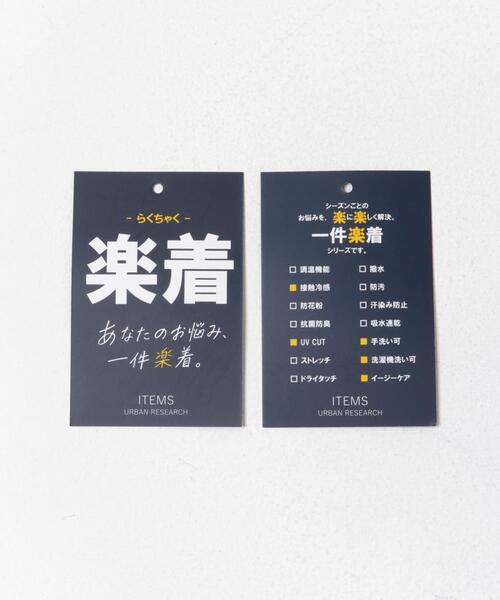 - らくちゃく -
楽着
あなたのお悩み、
一件楽着。
ITEMS
URBAN RESEARCH
シーズンごとの
お悩みを、楽に楽しく解決。
一件楽着
シリーズです。
調温機能
接触冷感
防花粉
抗菌防臭
UV CUT
ストレッチ
ドライタッチ
撥水
防汚
汗染み防止
吸水速乾
手洗い可
洗濯機洗い可
イージーケア
ITEMS
URBAN RESEARCH